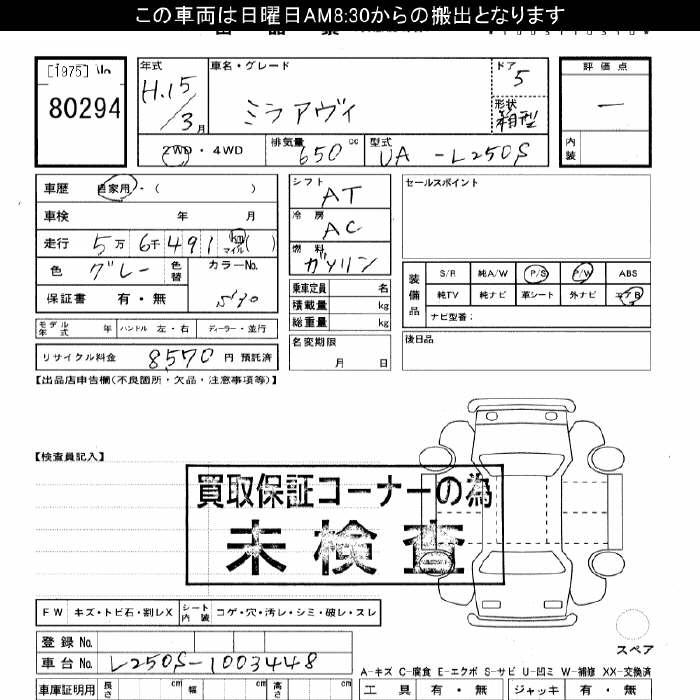 この車両は日曜日AM8:30からの搬出となります
[1975]
80294
年式 車名・グレード ドア 評価点
H.15 / 3月 ミラアヴィ 5 —
形状 箱型
内装
2WD・4WD 排気量 650 cc 型式 UA-L250S
車歴 自家用・( )
車検 年 月
走行 5万 6千 491 km マイル ( )
色 グレー 色替 カラーNo.
保証書 有・無
シフト AT
冷房 AC
燃料 ガソリン
乗車定員 名
積載量 kg
総重量 kg
名変期限
月 日
セールスポイント
装備品 S/R 純A/W P/S P/W ABS
純TV 純ナビ 革シート 外ナビ エアB
ナビ型番:
後日品
モデル年式 年 ハンドル 左・右 ディーラー・並行
リサイクル料金 8570 円 預託済
【出品店申告欄(不良箇所・欠品・注意事項等)】
【検査員記入】
買取保証コーナーの為
未検査
FW キズ・トビ石・割レX シート内装 コゲ・穴・汚レ・シミ・破レ・スレ
スペア
登録 No.
車台 No. L250S-1003448
A-キズ C-腐食 E-エクボ S-サビ U-凹ミ W-補修 XX-交換済
車庫証明用 長さ cm 幅 cm 高さ cm 工具 有・無 ジャッキ 有・無